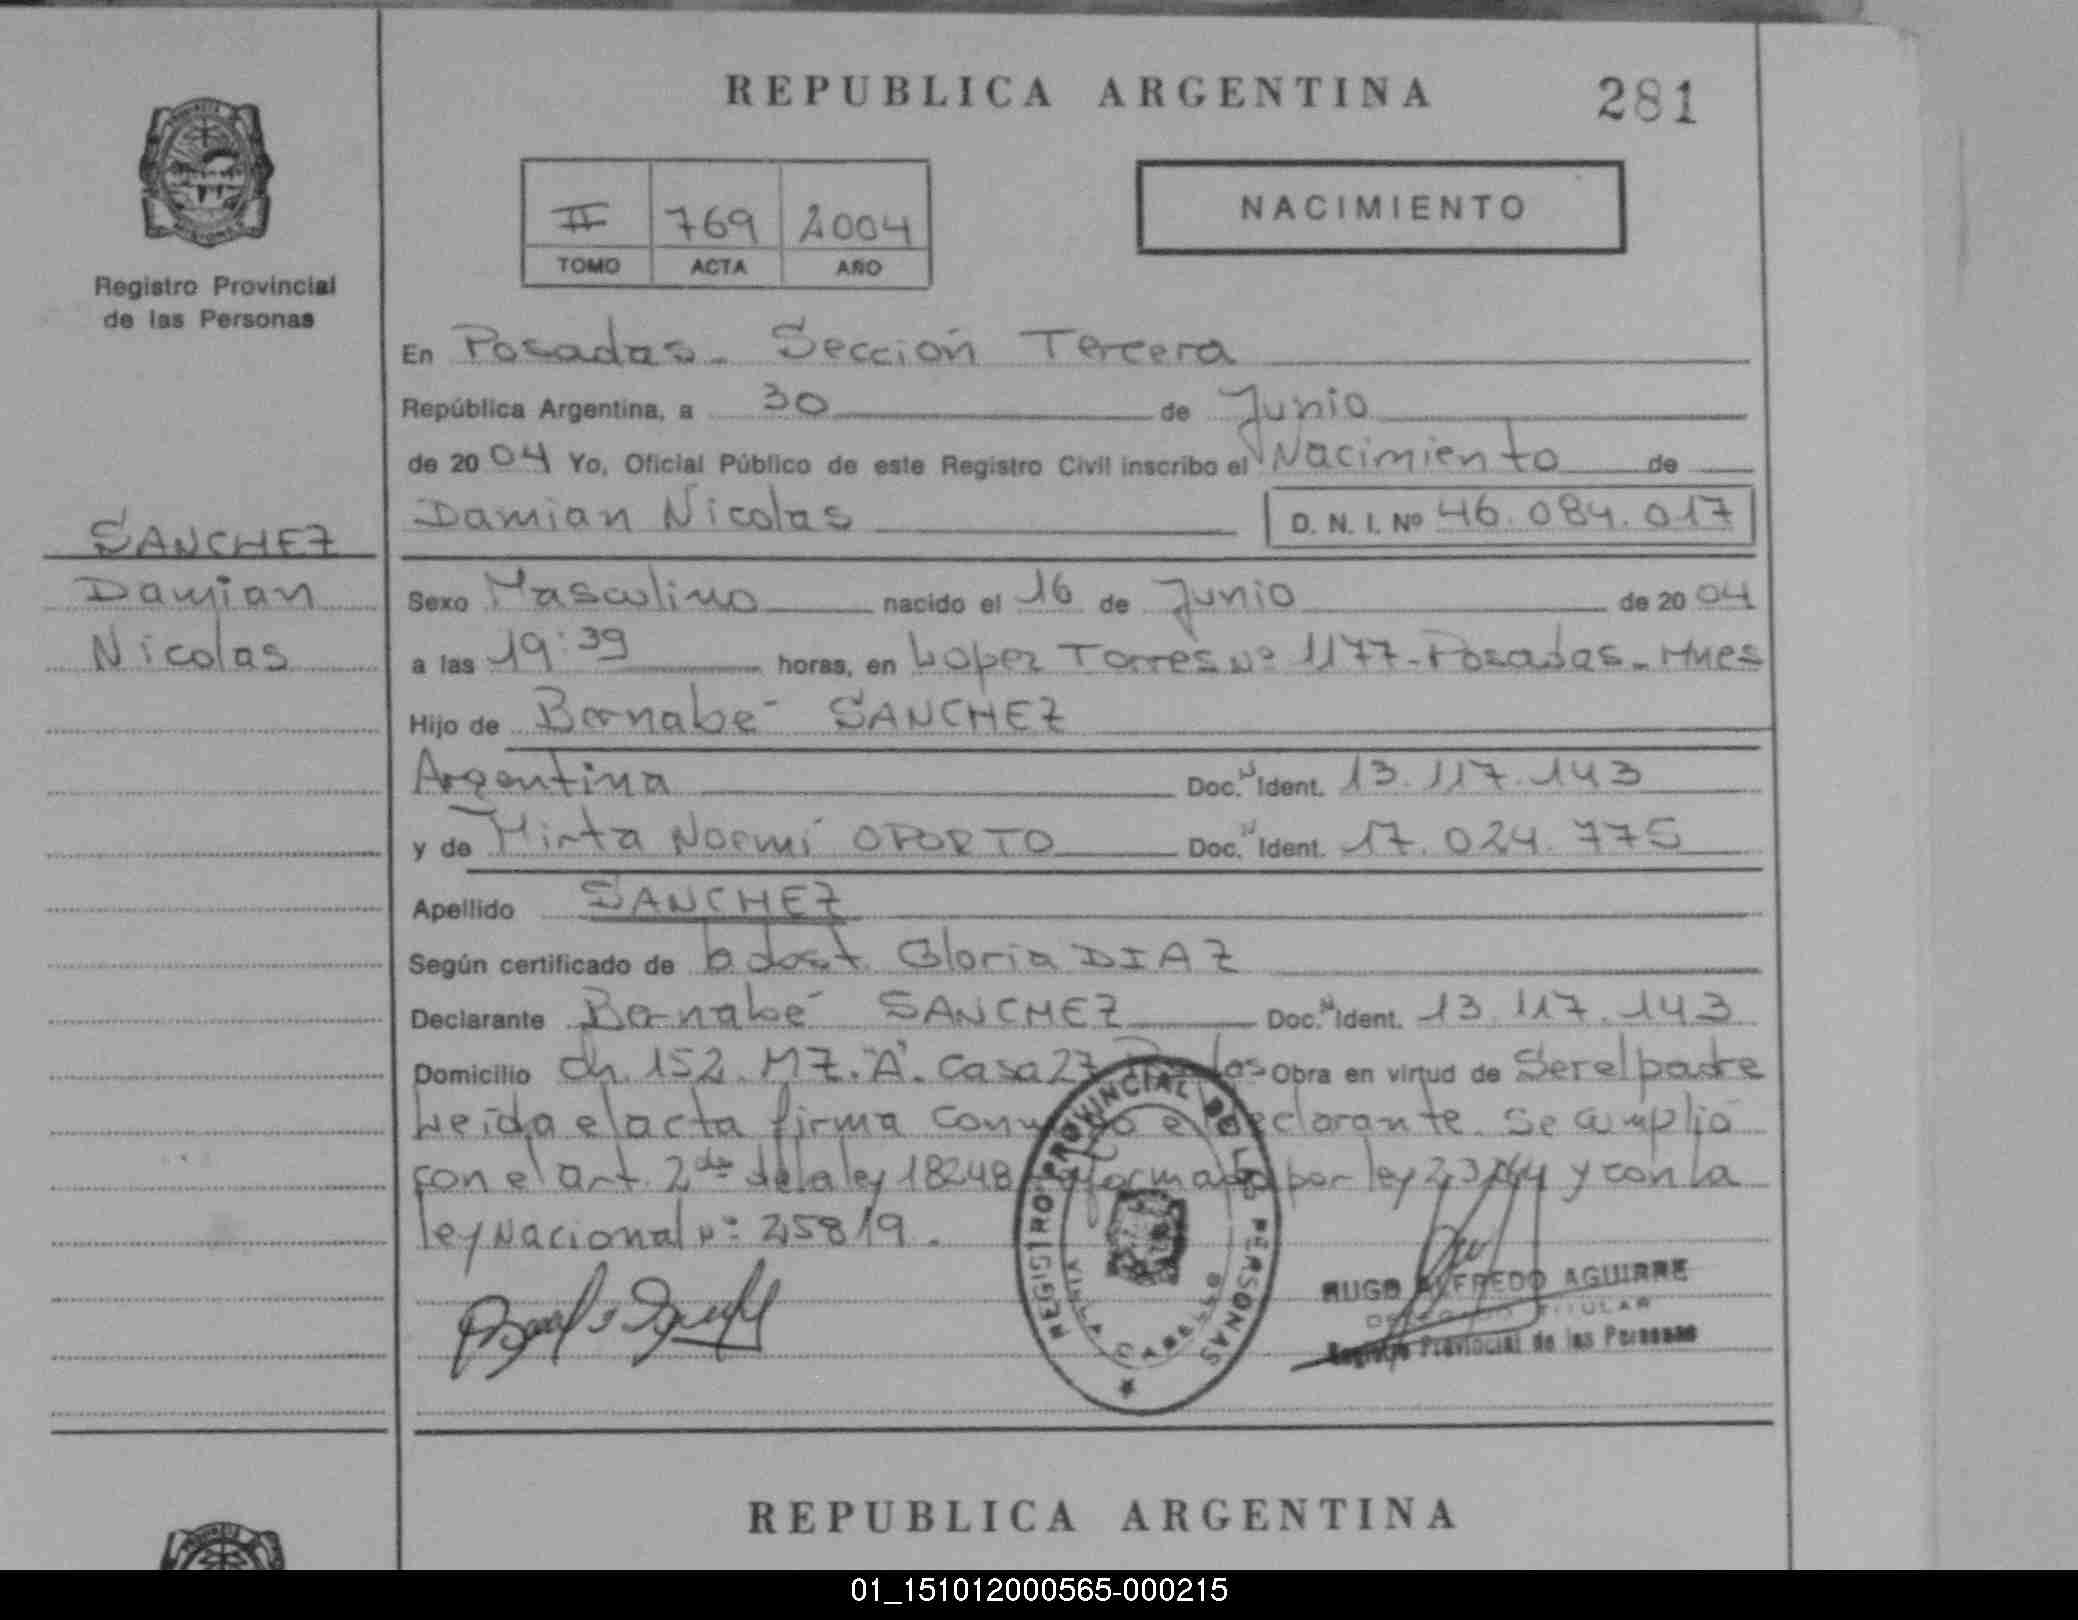 REPUBLICA ARGENTINA
281
NACIMIENTO
II 769 2004
TOMO ACTA AÑO
Registro Provincial
de las Personas
SANCHEZ
Damian
Nicolas
En Posadas - Sección Tercera
República Argentina, a 30 de Junio
de 2004 Yo, Oficial Público de este Registro Civil inscribo el Nacimiento de
Damian Nicolas D. N. I. Nº 46.084.017
Sexo Masculino nacido el 16 de Junio de 2004
a las 19:39 horas, en Lopez Torres Nº 1177 - Posadas - Mnes
Hijo de Bernabé SANCHEZ
Argentina Doc. Ident. 13.117.143
y de Mirta Noemí OPORTO Doc. Ident. 17.024.775
Apellido SANCHEZ
Según certificado de obst. Gloria DIAZ
Declarante Bernabé SANCHEZ Doc. Ident. 13.117.143
Domicilio ch. 152. MZ. "A". Casa 27 Obra en virtud de Ser el padre
Leida el acta firma declarante. Se cumplió
con el art. 2do de la ley 18248 por ley y con la
ley Nacional Nº: 25819.
REGISTRO PROVINCIAL DE LAS PERSONAS
VILLA CABELLO
HUGO ALFREDO AGUIRRE
TITULAR
Registro Provincial de las Personas
REPUBLICA ARGENTINA
01_151012000565-000215